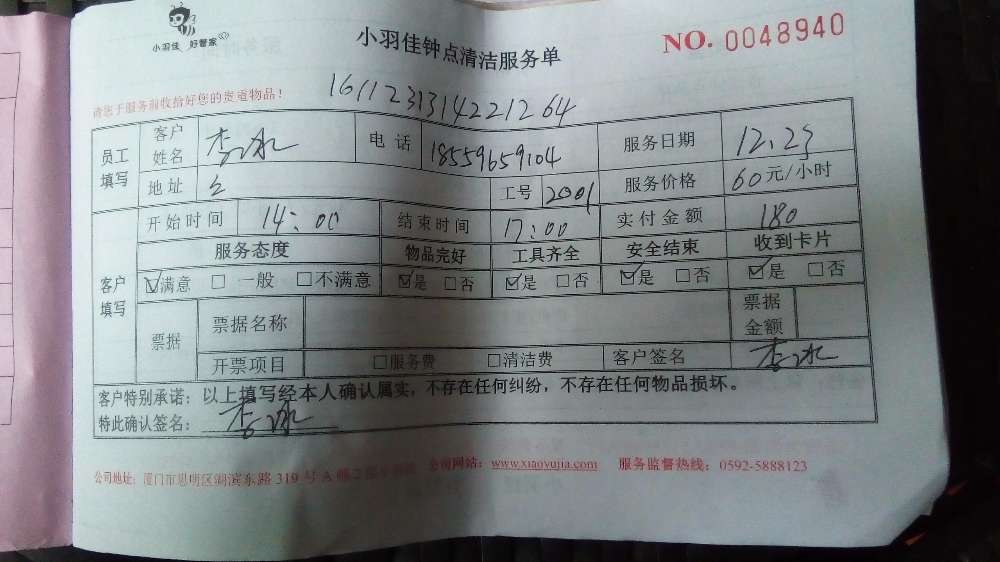 小羽佳 好管家
小羽佳钟点清洁服务单
NO. 0048940
请您于服务前收拾好您的贵重物品！
1611231314221264
员工填写 客户姓名 李冰 电话 18559659104 服务日期 12.23
地址 工号 2001 服务价格 60元/小时
客户填写 开始时间 14:00 结束时间 17:00 实付金额 180
服务态度 物品完好 工具齐全 安全结束 收到卡片
☑满意 □一般 □不满意 ☑是 □否 ☑是 □否 ☑是 □否 ☑是 □否
票据 票据名称 票据金额
开票项目 □服务费 □清洁费 客户签名 李冰
客户特别承诺：以上填写经本人确认属实，不存在任何纠纷，不存在任何物品损坏。
特此确认签名：李冰
公司地址：厦门市思明区湖滨东路319号A 公司网站：www.xiaoyujia.com 服务监督热线：0592-5888123